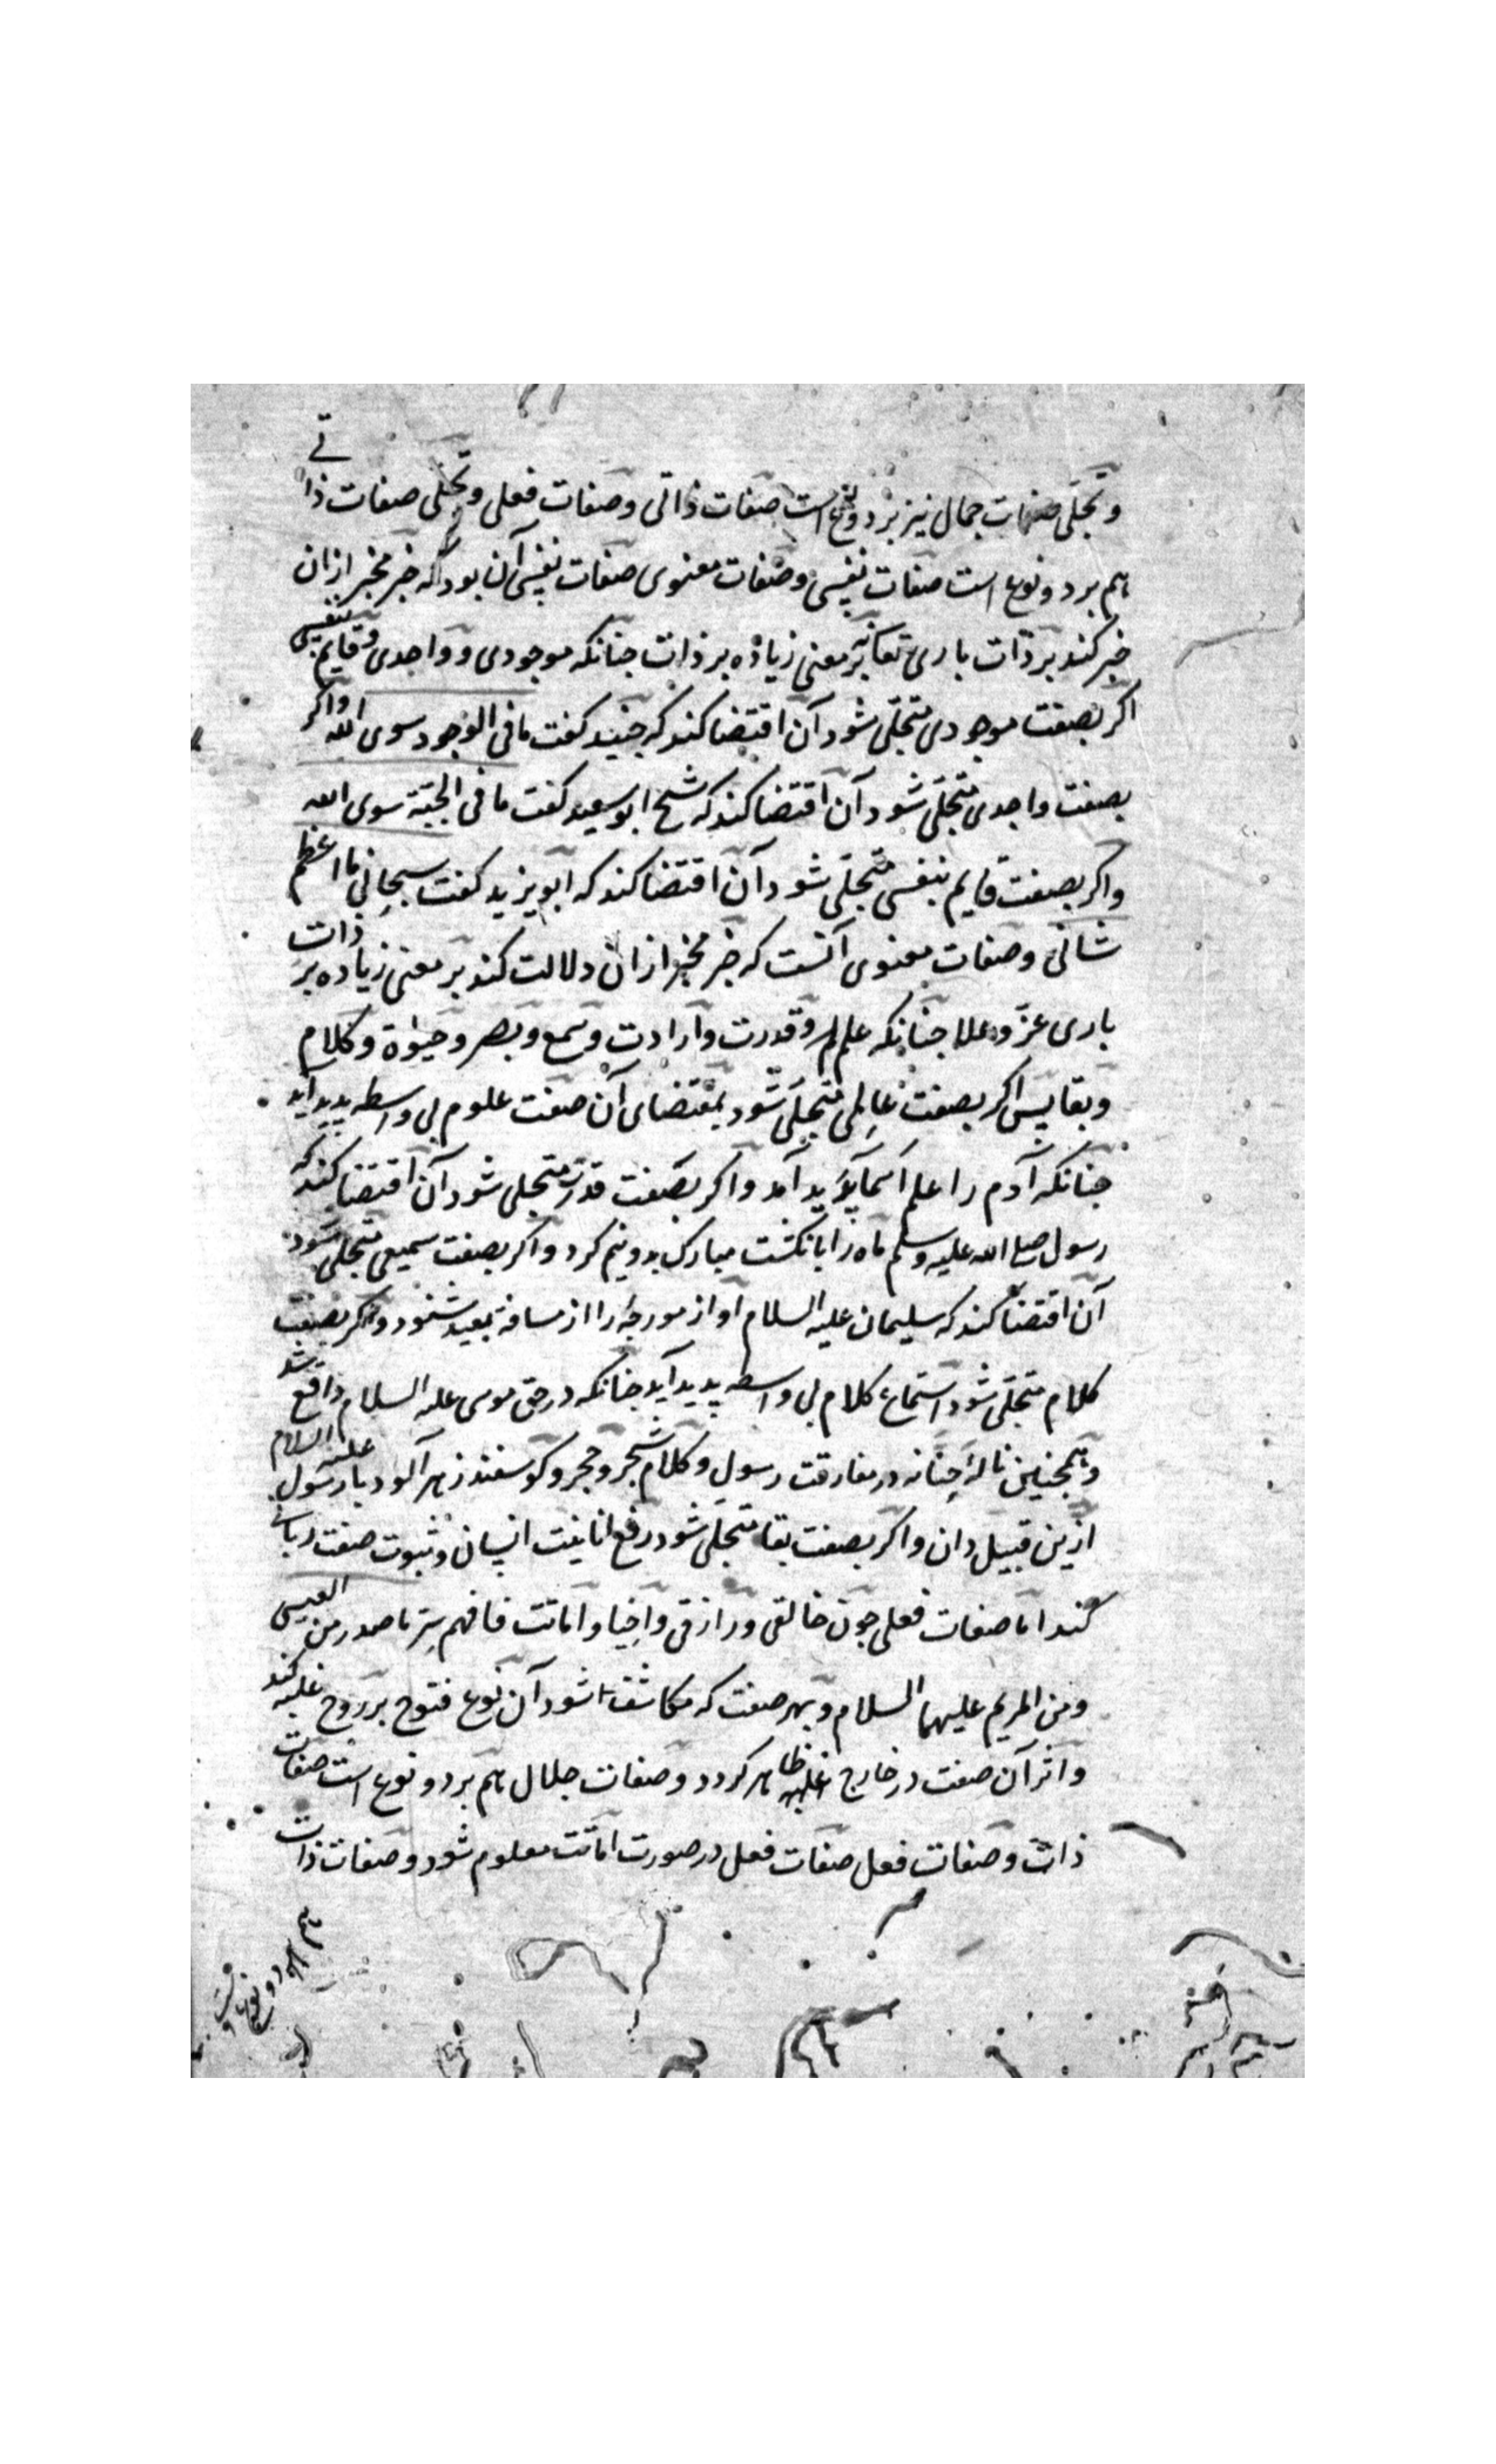 وتجلی صفات جمال نیز بر دو نوع است صفات ذاتی و صفات فعلی و تجلی صفات ذاتی
هم بر دو نوع است صفات نفسی و صفات معنوی صفات نفسی آن بود که خبر مخبر ازان
خبر کند بر ذات باری تعا نه بر معنی زیاده بر ذات جنانکه موجودی و واحدی و قایم بنفسی
اکر بصفت موجودی متجلی شود آن اقتضا کند که جنید کفت ما فی الوجود سوی الله و اکر
بصفت واحدی متجلی شود آن اقتضا کند که شیخ ابو سعید کفت ما فی الجبة سوی الله
واکر بصفت قایم بنفسی متجلی شود آن اقتضا کند که ابویزید کفت سبحانی ما اعظم
شانی و صفات معنوی آنست که خبر مخبر ازان دلالت کند بر معنی زیاده بر ذات
باری عز و علا جنانکه علم و قدرت و ارادت و سمع و بصر و حیوة و کلام
و بقا پس اکر بصفت عالمی متجلی شود بمقتضای آن صفت علوم بی واسطه پدید اید
جنانکه آدم را علم اسما پدید آمد و اکر بصفت قدرت متجلی شود آن اقتضا کند که
رسول صلی الله علیه وسلم ماه را بانکشت مبارک بدونیم کرد و اکر بصفت سمیعی متجلی شود
آن اقتضا کند که سلیمان علیه السلام آواز مورجه را از مسافة بعید شنود و اکر بصفت
کلام متجلی شود استماع کلام بی واسطه پدید آید جنانکه در حق موسی علیه السلام واقع شد
و همجنین نالۀ حنانه در مفارقت رسول و کلام شجر و حجر و کوسفند زهر آلود با رسول علیه السلام
ازین قبیل دان و اکر بصفت بقا متجلی شود رفع انانیت انسانی و ثبوت صفت ربانی
کند اما صفات فعلی جون خالقی و رازقی و احیا و اماتت فافهم سر ما صدر من العیسی
و من المریم علیهما السلام و بهر صفت که مکاشف شود آن نوع فتوح بر روح غلبه کند
و اثر آن صفت در خارج ظاهر کردد و صفات جلال هم بر دو نوع است صفات
ذات و صفات فعل صفات فعل در صورت اماتت معلوم شود و صفات ذات
هم بر دو نوع است